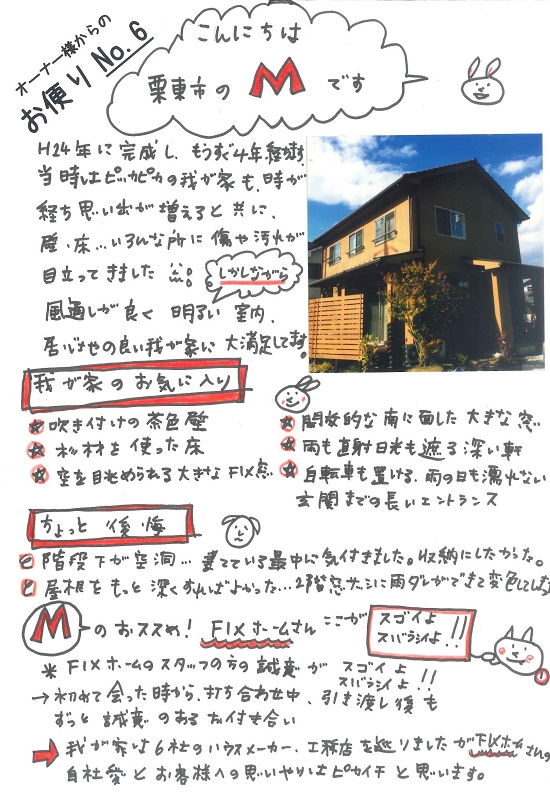 オーナー様からの
お便り No.6
こんにちは
栗東市の M です
H24年に完成し、もうすぐ4年経ちます
当時はピッカピカの我が家も、時が
経ち思い出が増えると共に、
壁・床…いろんな所に傷や汚れが
目立ってきました
しかしながら
風通しが良く 明るい 室内、
居心地の良い我が家に 大満足してます。
我が家のお気に入り
吹き付けの茶色壁
杉材を使った床
空を眺められる大きなFIX窓
開放的な南に面した大きな窓
雨も直射日光も遮る深い軒
自転車も置ける、雨の日も濡れない
玄関までの長いエントランス
ちょっと後悔
階段下が空洞… 建てている最中に気付きました。収納にしたかった。
屋根をもっと深くすればよかった…2階窓サッシに雨ダレができて変色してしまった
M のおススメ! FIXホームさん ここが
スゴイよ
スバラシイよ!!
* FIXホームのスタッフの方の誠意が スゴイよ
スバラシイよ!!
→ 初めて会った時から、打ち合わせ中、引き渡し後も
ずっと誠意のあるお付き合い
➡ 我が家は6社のハウスメーカー、工務店を巡りましたがFIXホームさんの
自社愛とお客様への思いやりはピカイチと思います。